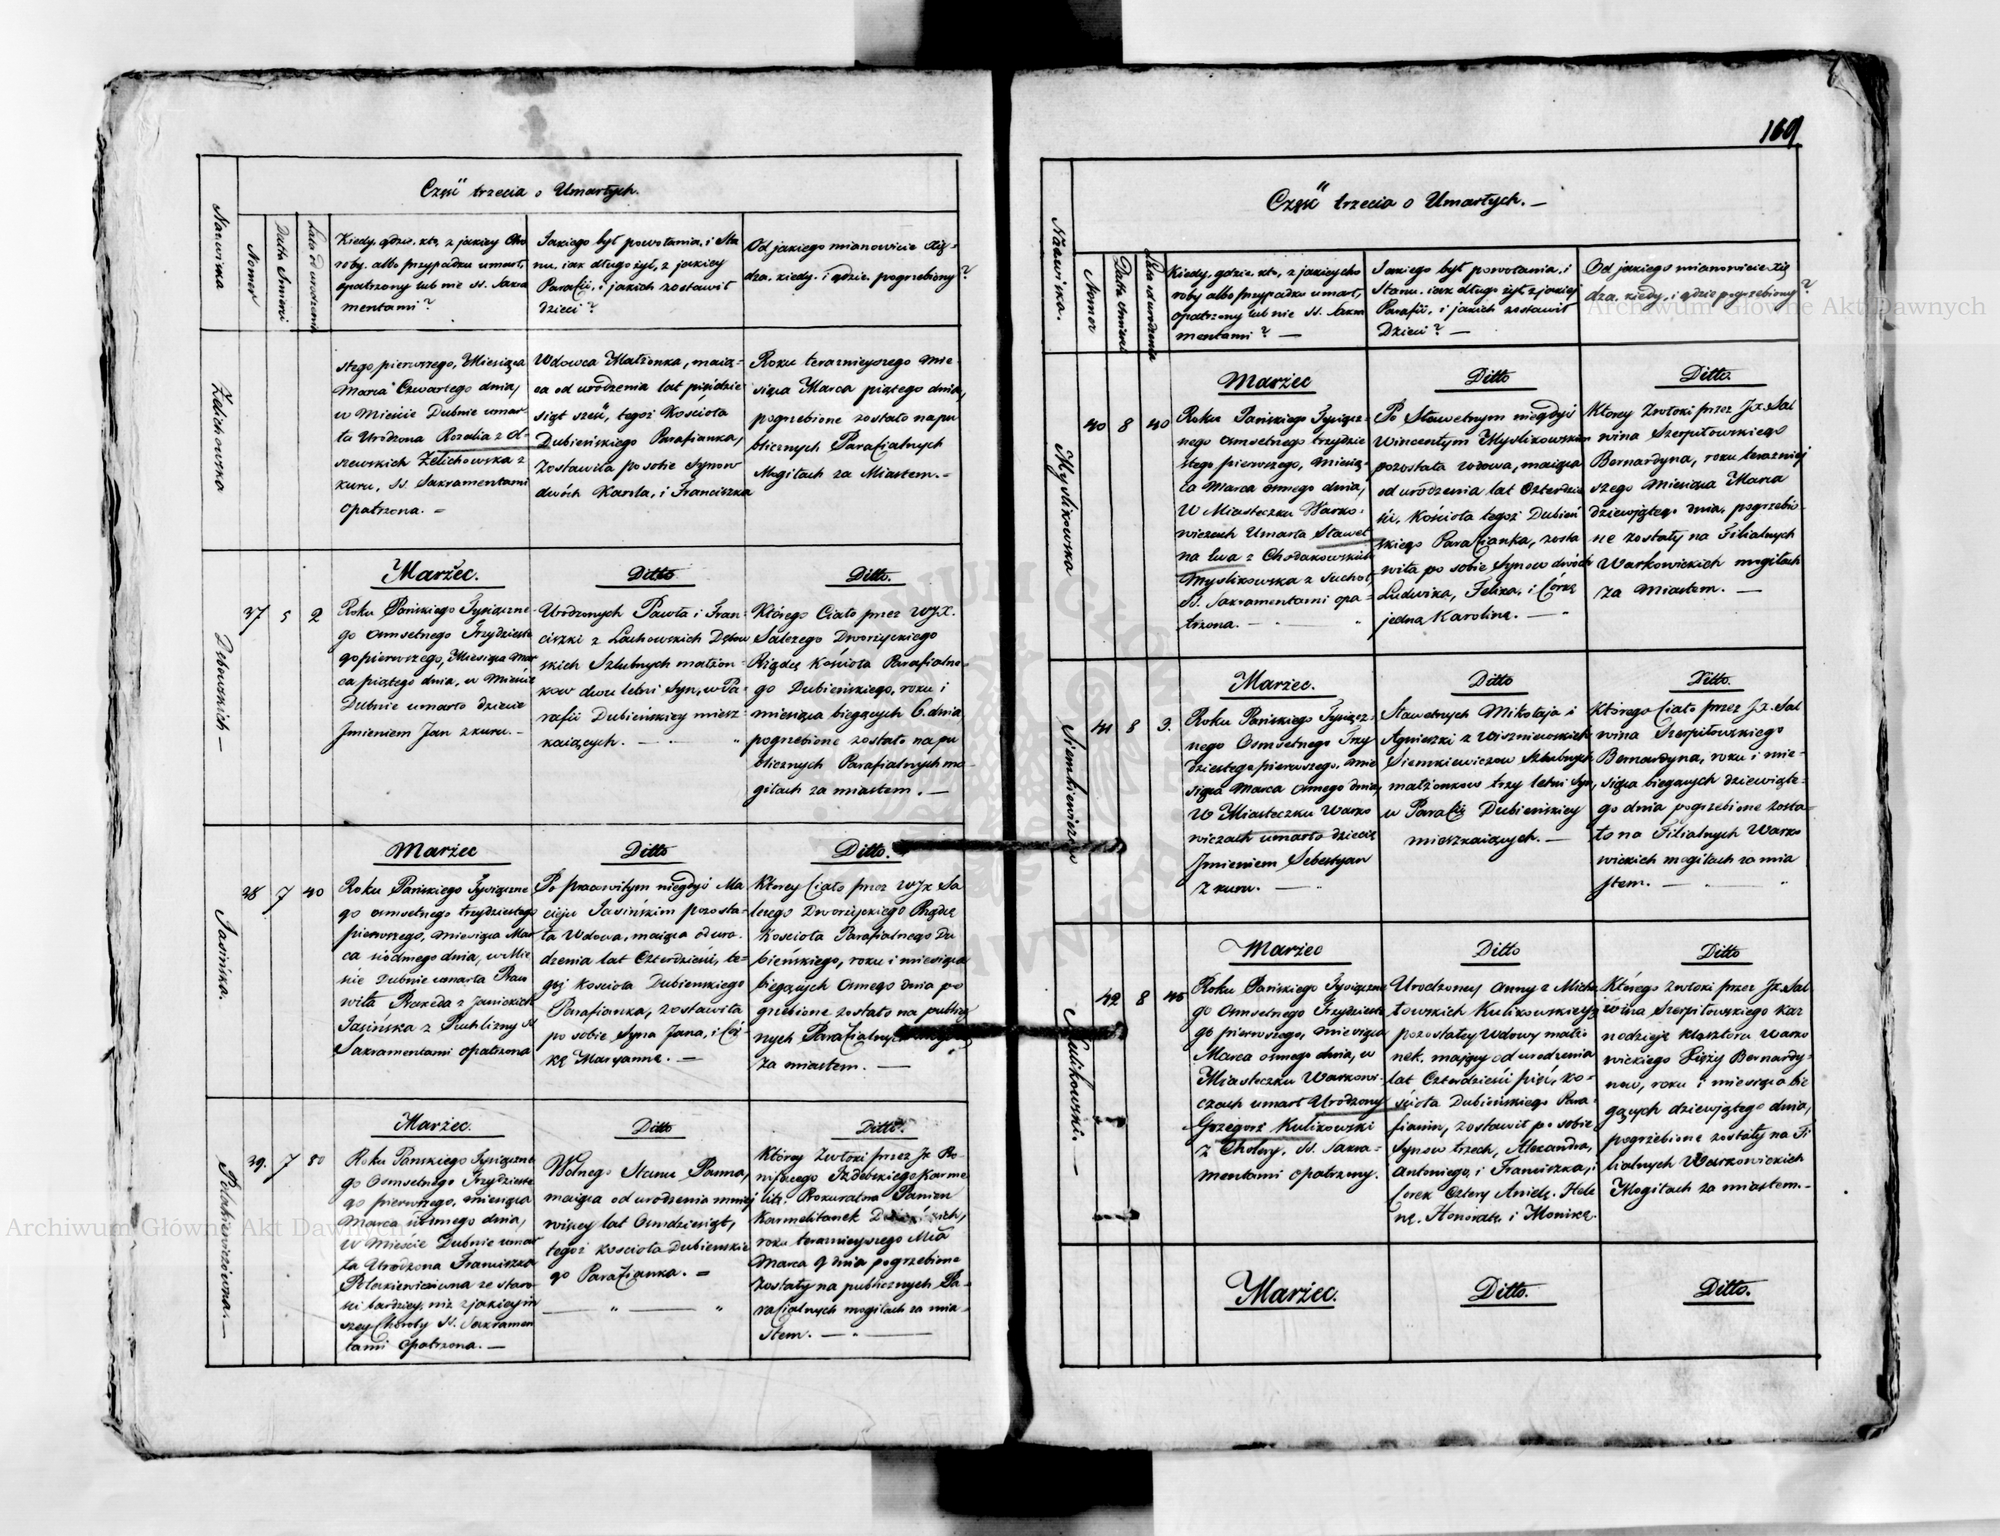 169
Część trzecia o Umarłych.
Nazwiska
Numer
Datta Śmierci
Lata od urodzenia
Kiedy, gdzie, kto, z jakiey Cho
roby, albo przypadku umarł,
opatrzony lub nie SS. Sakra
mentami?
Jakiego był powołania, i Sta
nu, jak długo żył, z jakiey
Parafii, i jakich zostawił
dzieci?
Od jakiego mianowicie Xię-
dza, kiedy, i gdzie pogrzebiony?
Żelichowska
stego pierwszego, Miesiąca
Marca Czwartego dnia,
w Mieście Dubnie umar
ła Urodzona Rozalia z Ol-
szewskich Żelichowska z
kuru, SS. Sakramentami
opatrzona. =
Wdowca Małżonka, maią-
ca od urodzenia lat pięćdzie
siąt sześć, tegoż Kościoła
Dubieńskiego Parafianka,
zostawiła po sobie Synow
dwóch Karola, i Franciszka
Roku teraznieyszego Mie-
siąca Marca piątego dnia,
pogrzebione zostało na pu
blicznych Parafialnych
Mogiłach za Miastem. -
Marzec.
Ditto
Ditto.
37
5
2
Roku Pańskiego Tysiączne-
go osmsetnego Trzydzieste
go pierwszego, Miesiąca Mar
ca piątego dnia, w Mieście
Dubnie umarło dziecie
Jmieniem Jan z kuru. -
Urodzonych Pawła i Fran-
ciszki z Lachowskich
skich Szlubnych małżon-
kow dwu letni Syn, w Pa-
rafii Dubieńskiey miesz-
kaiących. -
Którego Ciało przez WJX.
Salezego Dworzyckiego
Rządcę Kościoła Parafialne-
go Dubieńskiego, roku i
miesiąca bieżących 6. dnia
pogrzebione zostało na pu
blicznych Parafialnych mo-
giłach za miastem. -
Marzec
Ditto
Ditto.
38
7
40
Jasińska.
Roku Pańskiego Tysiączne
go osmsetnego trzydziestego
pierwszego, miesiąca Mar
ca siódmego dnia, w Mie
ście Dubnie umarła Praco
wita Praxeda z Janickich
Jasińska z Puchlizny SS
Sakramentami opatrzona
Po pracowitym niegdyś Ma
cieju Jasińskim pozosta-
ła Wdowa, maiąca od uro-
dzenia lat Czterdzieści, te-
goż Kościoła Dubienskiego
Parafianka, zostawiła
po sobie Syna Jana, i Cór-
kę Maryannę. -
Którey Ciało przez WJX Sa
lezego Dworzyckiego Rządcę
Kościoła Parafialnego Du
bienskiego, roku i miesiąca
bieżących Osmego dnia po
grzebione zostało na publicz
nych Parafialnych
za miastem. -
Marzec.
Ditto
Ditto.
39.
7
80
Roku Panskiego Tysiączne
go Osmsetnego Trzydzieste
go pierwszego, miesiąca
Marca siódmego dnia,
w Mieście Dubnie umar
ła Urodzona Franciszka
Polakiewiczówna ze staro-
ści bardziey, niż z jakiey in
szey Choroby SS. Sakramen
tami opatrzona. -
Wolnego Stanu Panna,
maiąca od urodzenia mniey
więcey lat Osmdziesiąt,
tegoż kościoła Dubienskie
go Parafianka. =
Którey Zwłoki przez Jx Bo-
nifacego Izdebskiego Karme
litę, Prokuratora Panien
Karmelitanek
roku teraznieyszego Mca
Marca 9 dnia pogrzebione
zostały na publicznych Pa-
rafialnych mogiłach za mia-
stem. -
Część trzecia o Umarłych. -
Nazwiska.
Numer
Datta Śmierci
Lata od urodzenia
Kiedy, gdzie, kto, z jakiey cho
roby albo przypadku umarł,
opatrzony lub nie SS. Sakra
mentami? -
Jakiego był powołania, i
Stanu, jak długo żył, z jakiey
Parafii, i jakich zostawił
Dzieci? -
Od jakiego mianowicie Xię
dza, kiedy, i gdzie pogrzebiony?
Marzec
Ditto
Ditto.
40
8
40
Myslikowska
Roku Pańskiego Tysiącz-
nego osmsetnego trzydzie
stego pierwszego, miesią-
ca Marca osmego dnia,
W Miasteczku Warko-
wiczach Umarła Sławet
na Ewa z Chodakowskich
Myslikowska z Suchot,
SS. Sakramentami opa-
trzona. -
Po Sławetnym niegdyś
Wincentym Myslikowskim
pozostała wdowa, maiąca
od urodzenia lat Czterdzie
ści, Kościoła tegoż Dubień
skiego Parafianka, zosta
wiła po sobie Synow dwóch
Ludwika, Felixa, i Córkę
jedną Karolinę. -
Którey Zwłoki przez Jx. Sal
wina Szerpiłowskiego
Bernardyna, roku teraźniej
szego Miesiąca Marca
dziewiątego dnia, pogrzebio-
ne zostały na Filialnych
Warkowickich mogiłach
za Miastem. -
Marzec.
Ditto
Ditto.
41
8
3.
Roku Pańskiego Tysiącz-
nego Osmsetnego Trzy
dziestego pierwszego, mie
siąca Marca osmego dnia,
W Miasteczku Warko
wiczach umarło dziecię
Jmieniem Sebestyan
z kuru. -
Sławetnych Mikołaja i
Agnieszki z Wiszniewskich
Siemkiewiczow Szlubnych
małżonkow trzy letni Syn,
w Parafii Dubieńskiey
mieszkaiących. -
Którego Ciało przez Jx. Sal
wina Szerpiłowskiego
Bernardyna, roku i mie-
siąca bieżących dziewiąte-
go dnia pogrzebione zosta-
ło na Filialnych Warko
wickich mogiłach za mia
stem. -
Marzec
Ditto
Ditto
42
8
45
Kulikowski. -
Roku Pańskiego Tysiączne
go Osmsetnego Trzydzieste
go pierwszego, miesiąca
Marca osmego dnia, w
Miasteczku Warkowi-
czach umarł Urodzony
Grzegorz Kulikowski
z Cholery, SS. Sakra-
mentami opatrzony.
Urodzoney Anny z Micha
łowskich Kulikowskiey
pozostałey Wdowy małżo
nek, maiący od urodzenia
lat Czterdzieści pięć, Ko-
ścioła Dubieńskiego Para-
fianin, zostawił po sobie
Synow trzech, Alexandra,
Antoniego, i Franciszka, i
Corek Cztery Anielę, Hele
nę, Honoratę i Monikę.
Którego zwłoki przez Jx. Sal
wina Szerpiłowskiego Kaz
nodzieję klasztoru Warko
wickiego Xięży Bernardy-
now, roku i miesiąca bie
żących dziewiątego dnia,
pogrzebione zostały na Fi
lialnych Warkowickich
Mogiłach za miastem. -
Marzec.
Ditto.
Ditto.
Archiwum Główne Akt Dawnych
Archiwum Główne Akt Dawnych